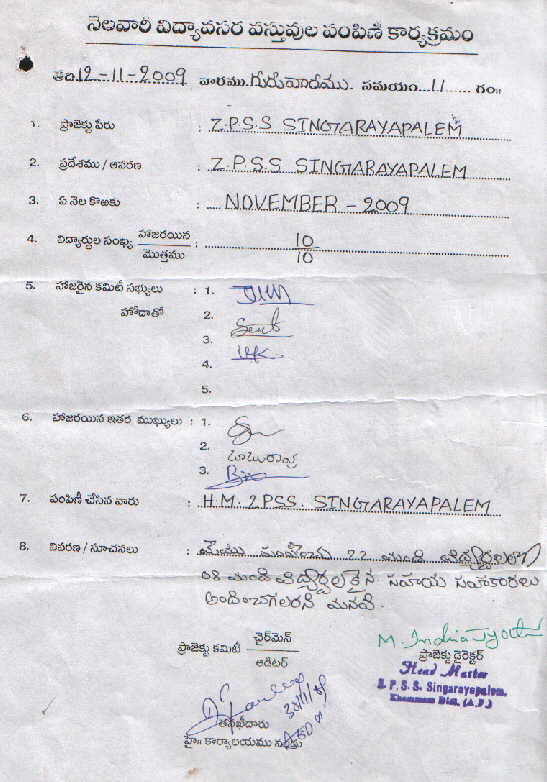 నెలవారీ విద్యావసర వస్తువుల పంపిణీ కార్యక్రమం
తేది.12-11-2009 వారము.గురువారము. సమయం..11......గం॥
1. ప్రాజెక్టు పేరు : Z.P.S.S SINGARAYAPALEM
2. ప్రదేశము / ఆవరణ : Z.P.S.S SINGARAYAPALEM
3. ఏ నెల కొఱకు : NOVEMBER - 2009
4. విద్యార్థుల సంఖ్య హాజరయిన / మొత్తము : 10 / 10
5. హాజరైన కమిటీ సభ్యులు : 1.
హోదాతో 2.
3.
4.
5.
6. హాజరయిన ఇతర ముఖ్యులు : 1.
2. బాబురావు
3.
7. పంపిణీ చేసిన వారు : H.M. ZPSS. SINGARAYAPALEM
8. వివరణ / సూచనలు : మేము పంపిన 22 మంది విద్యార్థులలో
08 మంది విద్యార్థులకైన సహాయ సహకారలు
అందించగలరని మనవి.
ప్రాజెక్టు కమిటీ ఛైర్‌మెన్ / ఆడిటర్
M. Indira Jyothi
ప్రాజెక్టు డైరెక్టర్
Head Master
Z. P. S. S. Singarayapalem.
Khammam Dist. (A.P.)
తనిఖీదారు
హై॥ కార్యాలయము నకు